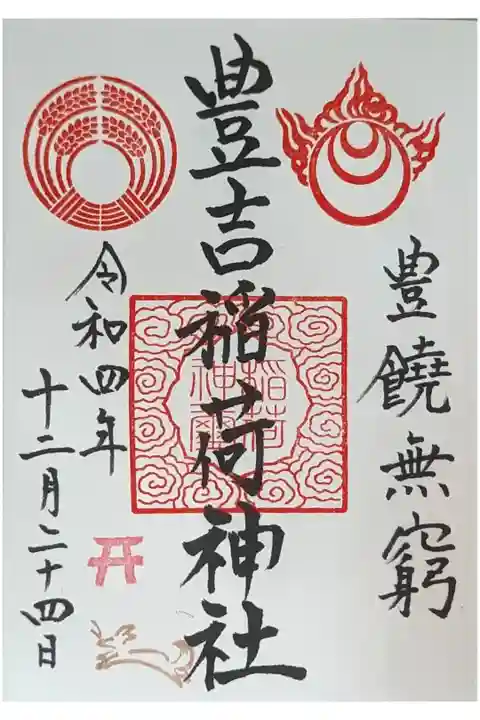 豊饒無窮
豊吉稲荷神社
令和四年
十二月二十四日